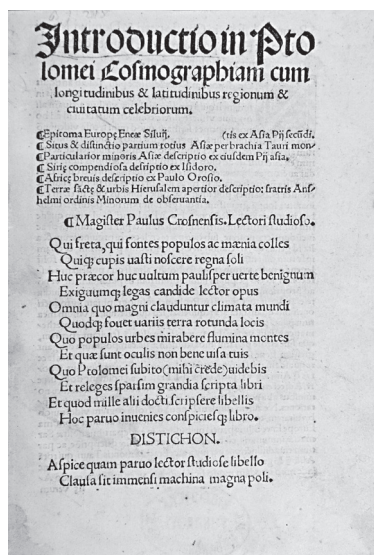 Introductio in Pto
lomei Cosmographiam cum
longitudinibus & latitudinibus regionum &
ciuitatum celebriorum.
¶Epitoma Europę Eneæ Siluij. (tis ex Asia Pij secūdi.
¶Situs & distinctio partium totius Asiæ per brachia Tauri mon-
¶Particularior minoris Asiæ descriptio ex eiusdem Pij asia.
¶Sirię compendiosa descriptio ex Isidoro.
¶Africę breuis descriptio ex Paulo Orosio.
¶Terræ sāctę & urbis Hierusalem apertior descriptio: fratris Ans-
helmi ordinis Minorum de obseruantia.
¶Magister Paulus Crosnensis. Lectori studioso.
Qui freta, qui fontes populos ac mœnia colles
Quiqȝ cupis uasti noscere regna soli
Huc præcor huc uultum paulisper uerte benignum
Exiguumqȝ legas candide lector opus
Omnia quo magni clauduntur climata mundi
Quodqȝ fouet uariis terra rotunda locis
Quo populos urbes mirabere flumina montes
Et quæ sunt oculis non bene uisa tuis
Quo Ptolomei subito (mihi crede) uidebis
Et releges sparsim grandia scripta libri
Et quod mille alii docti scripsere libellis
Hoc paruo inuenies conspiciesqȝ libro.
DISTICHON.
Aspice quam paruo lector studiose libello
Clausa sit immensi machina magna poli.